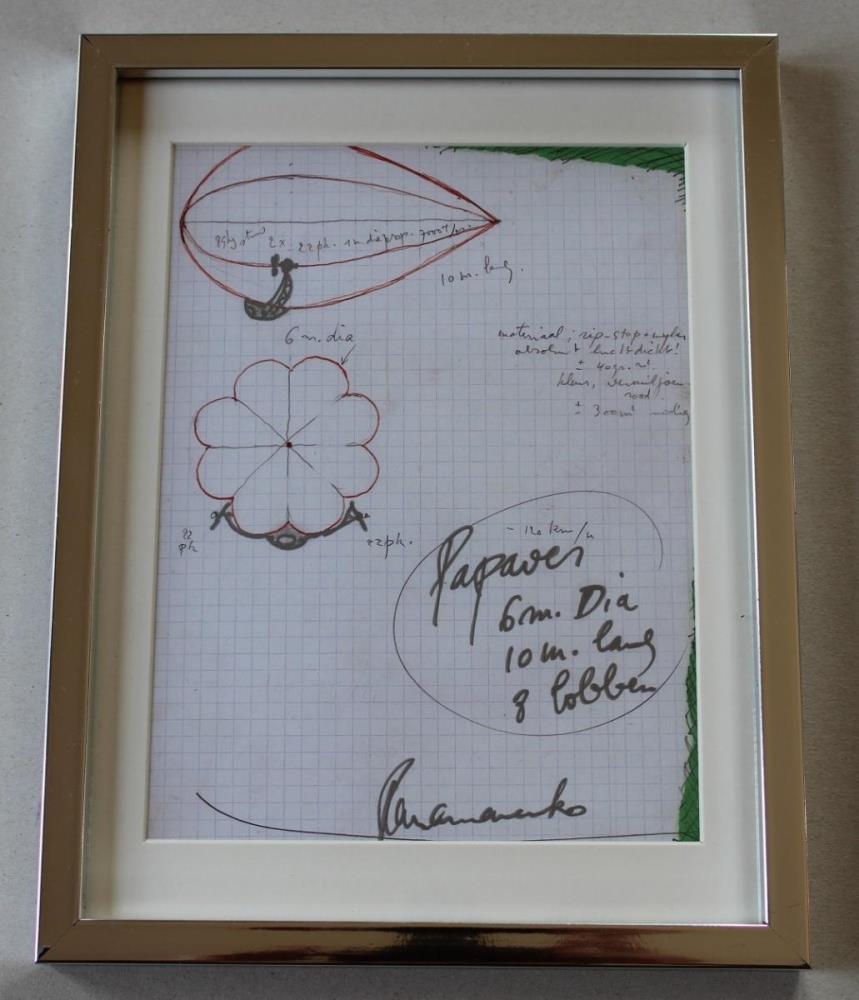 2x 22ph. 1m diaprop. 7000t/m.
10 m. lang.
6 m. dia
materiaal; rip-stop + mylar
absoluut luchtdicht!
± 40gr. m².
kleur, vermiljoen
rood
± 300m² nodig
22
ph
22ph.
- 120 km/u
Papaver
6m. Dia
10 m. lang
8 lobben
Panamarenko